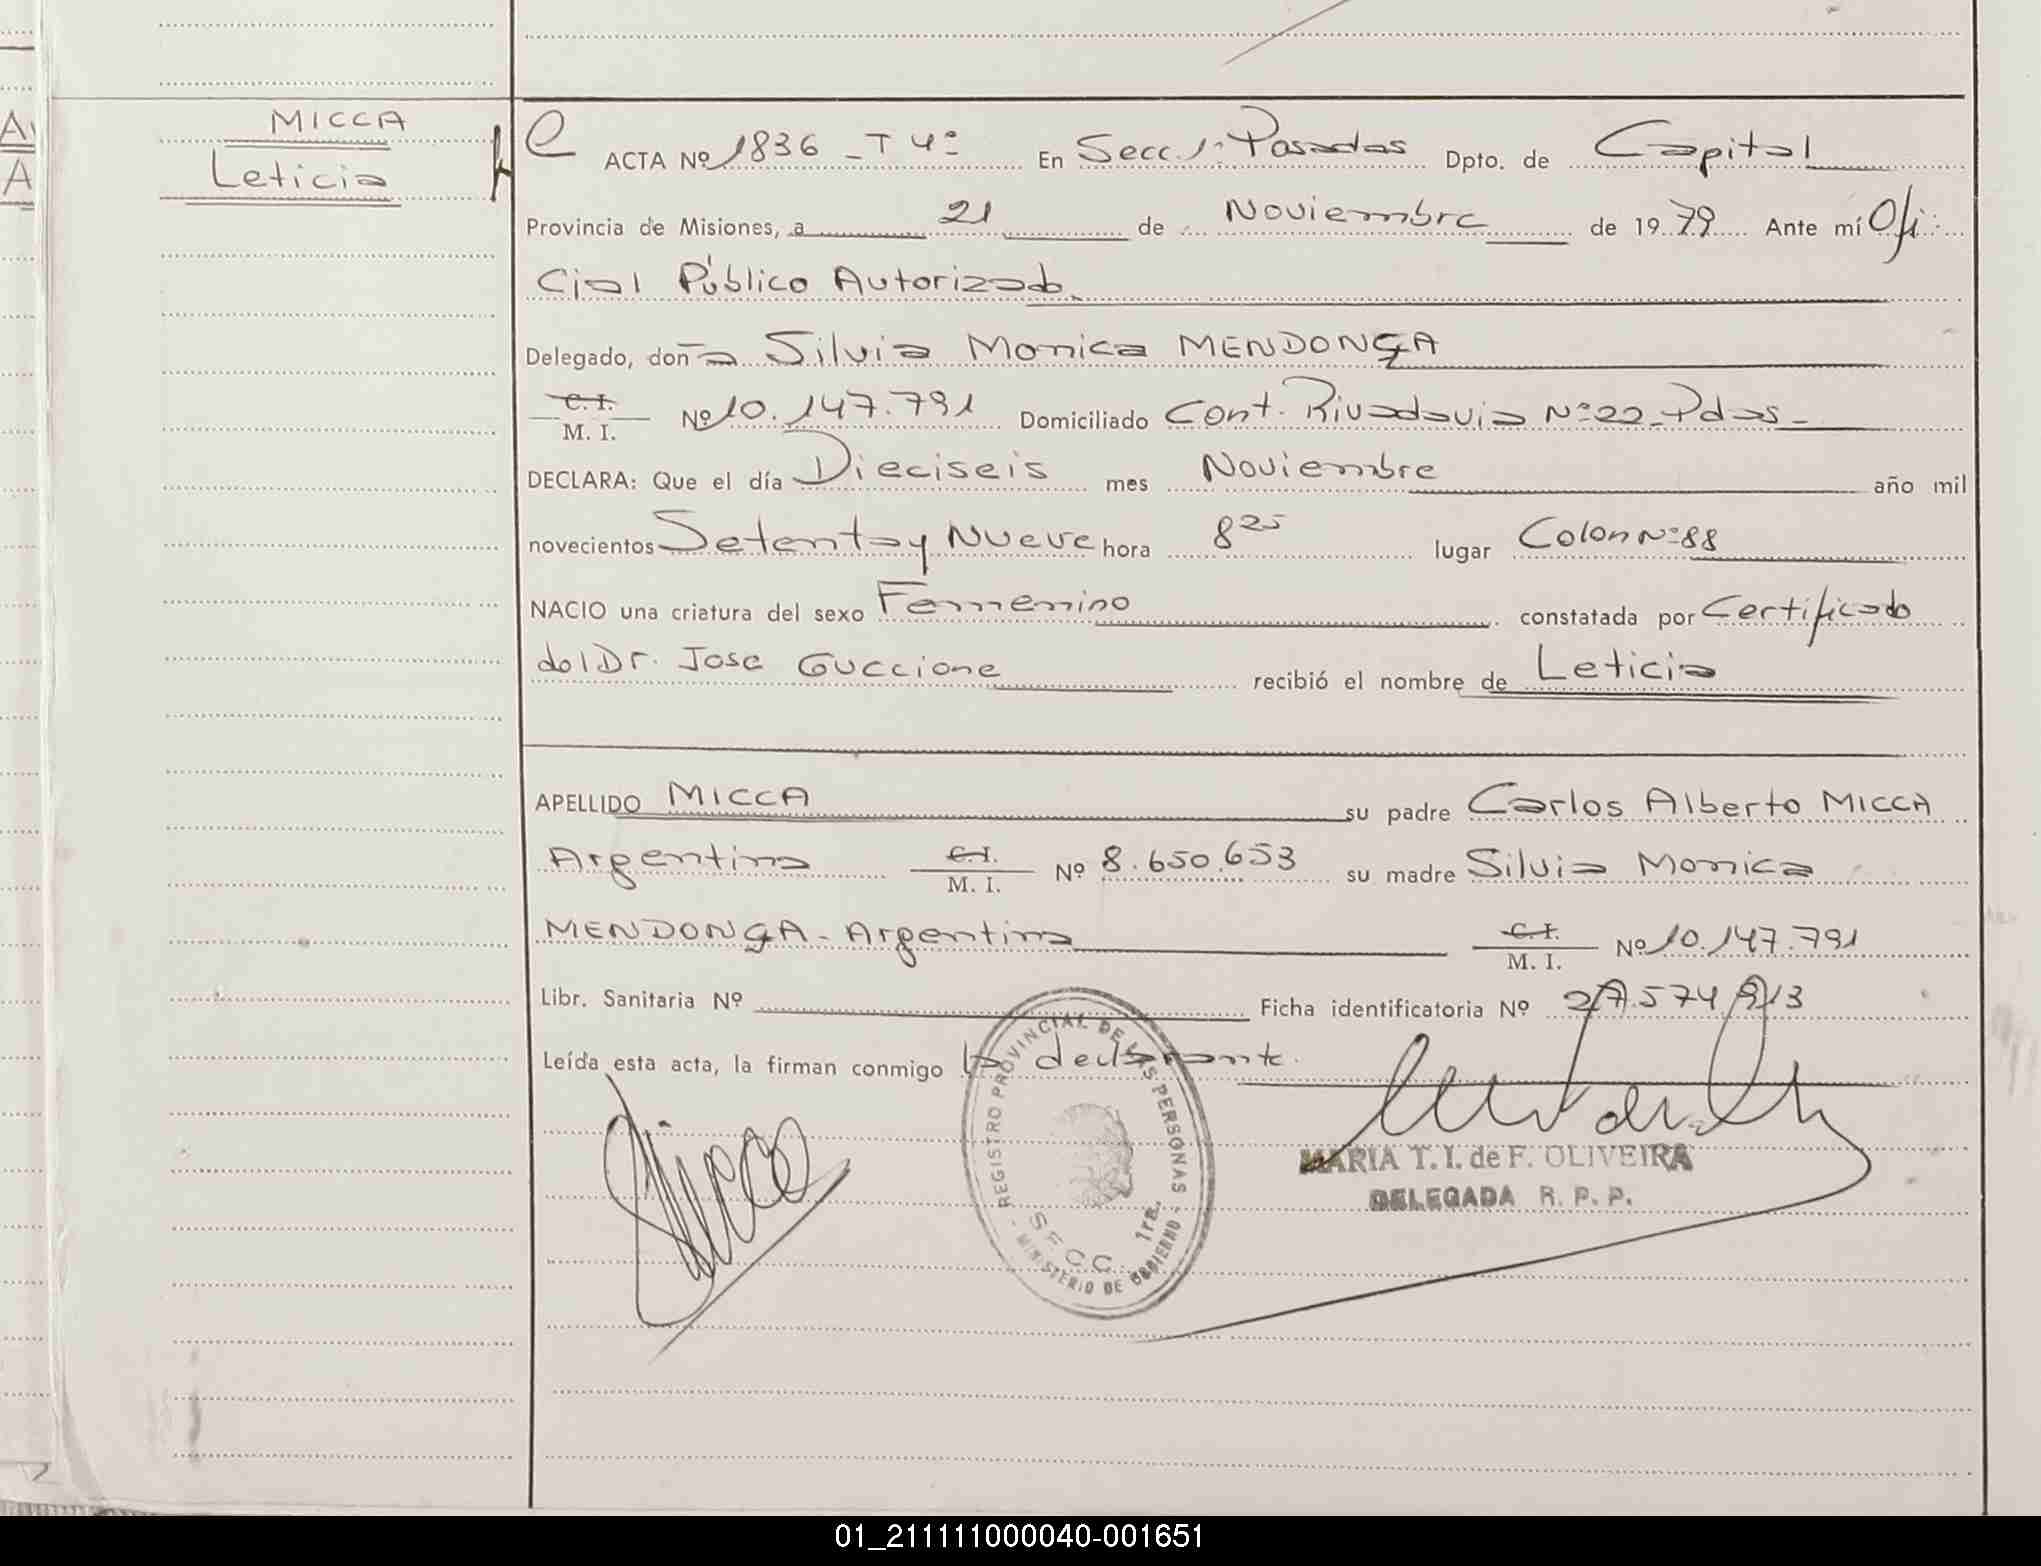 MICCA
Leticia
ACTA Nº 1836 - T 4º En Secc. 1ª Posadas Dpto. de Capital
Provincia de Misiones, a 21 de Noviembre de 1979 Ante mí Ofi-
cial Público Autorizado
Delegado, doña Silvia Monica MENDONÇA
C. I.
M. I. Nº 10.147.791 Domiciliado Cont. Rivadavia Nº 22 - Pdas -
DECLARA: Que el día Dieciseis mes Noviembre año mil
novecientos Setenta y Nueve hora 8 25 lugar Colon Nº 88
NACIO una criatura del sexo Femenino constatada por Certificado
del Dr. Jose Guccione recibió el nombre de Leticia
APELLIDO MICCA su padre Carlos Alberto MICCA
Argentino C. I.
M. I. Nº 8.650.653 su madre Silvia Monica
MENDONÇA - Argentina C. I.
M. I. Nº 10.147.791
Libr. Sanitaria Nº Ficha identificatoria Nº 27.574.913
Leída esta acta, la firman conmigo la declarante.
REGISTRO PROVINCIAL DE LAS PERSONAS
1ra.
- MINISTERIO DE GOBIERNO -
MARIA T. I. de F. OLIVEIRA
DELEGADA R. P. P.
01_211111000040-001651